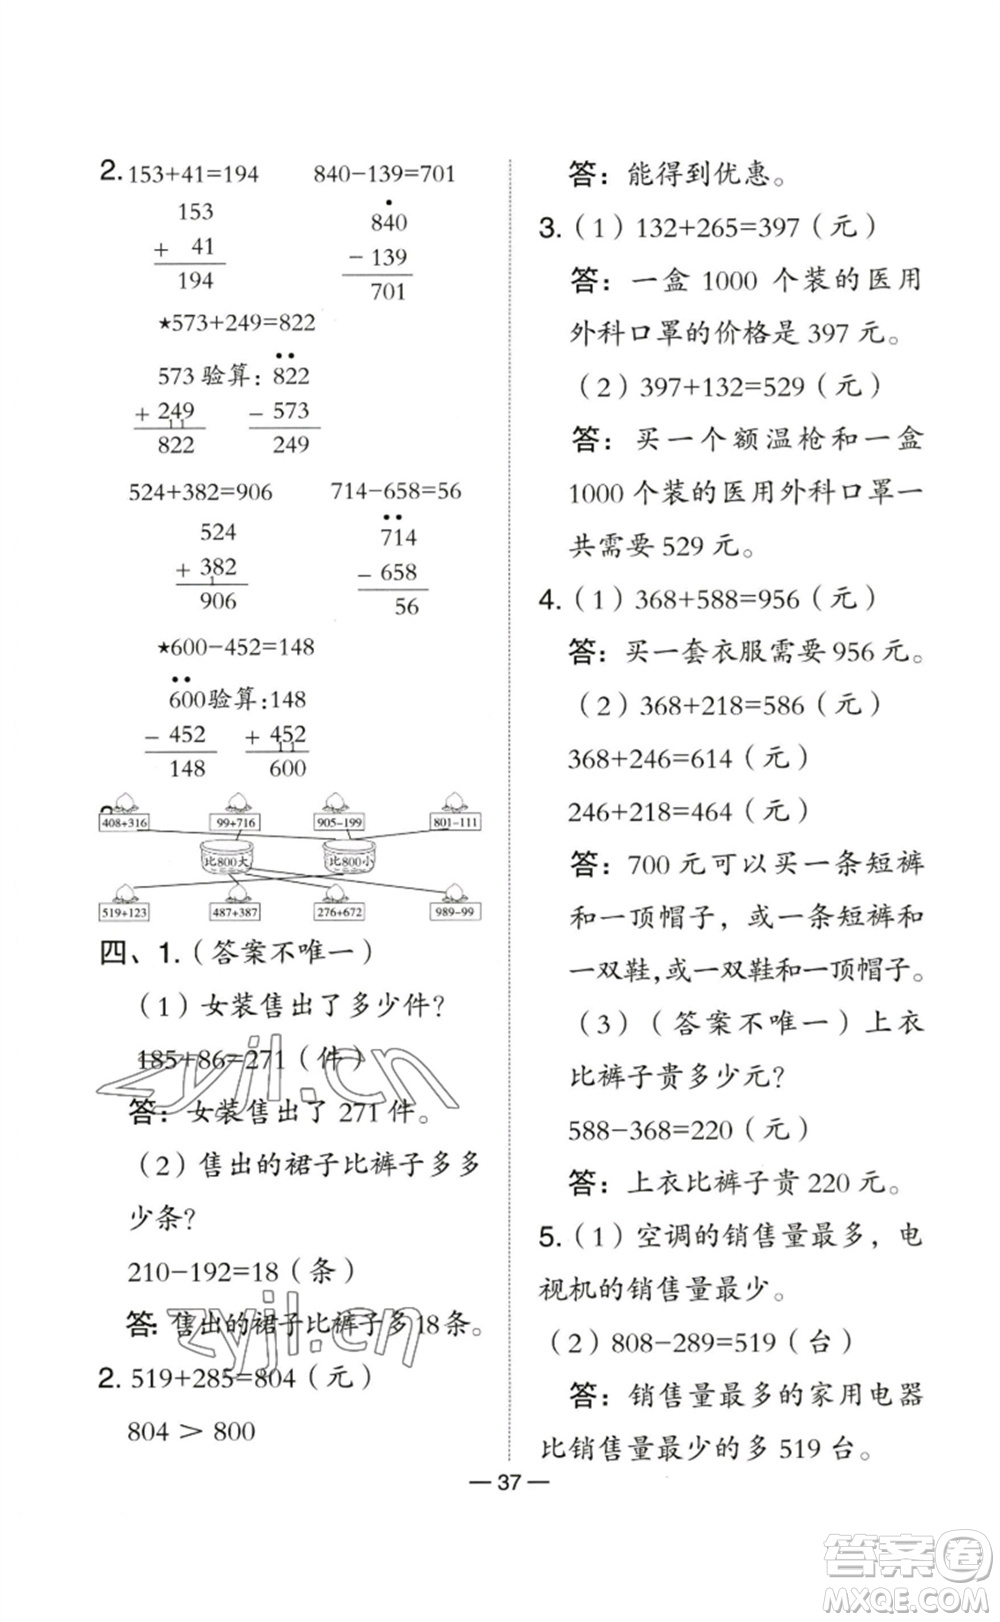 2. 153+41=194 840−139=701
153
+ 41
194
840
− 139
701
★573+249=822
573 验算: 822
+ 249 − 573
11
822 249
524+382=906 714−658=56
524
+ 382
1
906
714
− 658
56
★600−452=148
600 验算: 148
− 452 + 452
11
148 600
408+316 99+716 905−199 801−111
比800大 比800小
519+123 487+387 276+672 989−99
四、1.（答案不唯一）
（1）女装售出了多少件?
185+86=271（件）
答：女装售出了 271 件。
（2）售出的裙子比裤子多多
少条?
210−192=18（条）
答：售出的裙子比裤子多 18 条。
2. 519+285=804（元）
804 > 800
答：能得到优惠。
3.（1）132+265=397（元）
答：一盒 1000 个装的医用
外科口罩的价格是 397 元。
（2）397+132=529（元）
答：买一个额温枪和一盒
1000 个装的医用外科口罩一
共需要 529 元。
4.（1）368+588=956（元）
答：买一套衣服需要 956 元。
（2）368+218=586（元）
368+246=614（元）
246+218=464（元）
答：700 元可以买一条短裤
和一顶帽子，或一条短裤和
一双鞋，或一双鞋和一顶帽子。
（3）（答案不唯一）上衣
比裤子贵多少元?
588−368=220（元）
答：上衣比裤子贵 220 元。
5.（1）空调的销售量最多，电
视机的销售量最少。
（2）808−289=519（台）
答：销售量最多的家用电器
比销售量最少的多 519 台。
— 37 —
zyjl.cn
zyjl.cn
答案圈
MXQE.COM